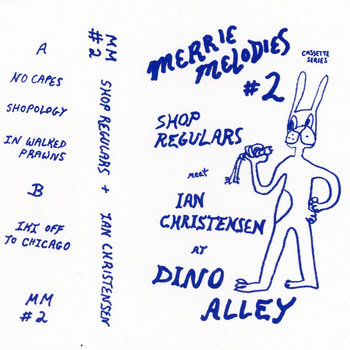 A
NO CAPES
SHOPOLOGY
IN WALKED
PRAWNS
B
IHI OFF
TO CHICAGO
MM
#2
MM
#2
SHOP REGULARS + IAN CHRISTENSEN
MERRIE
MELODIES
#2
CASSETTE
SERIES
SHOP
REGULARS
meet
IAN
CHRISTENSEN
AT
DINO
ALLEY